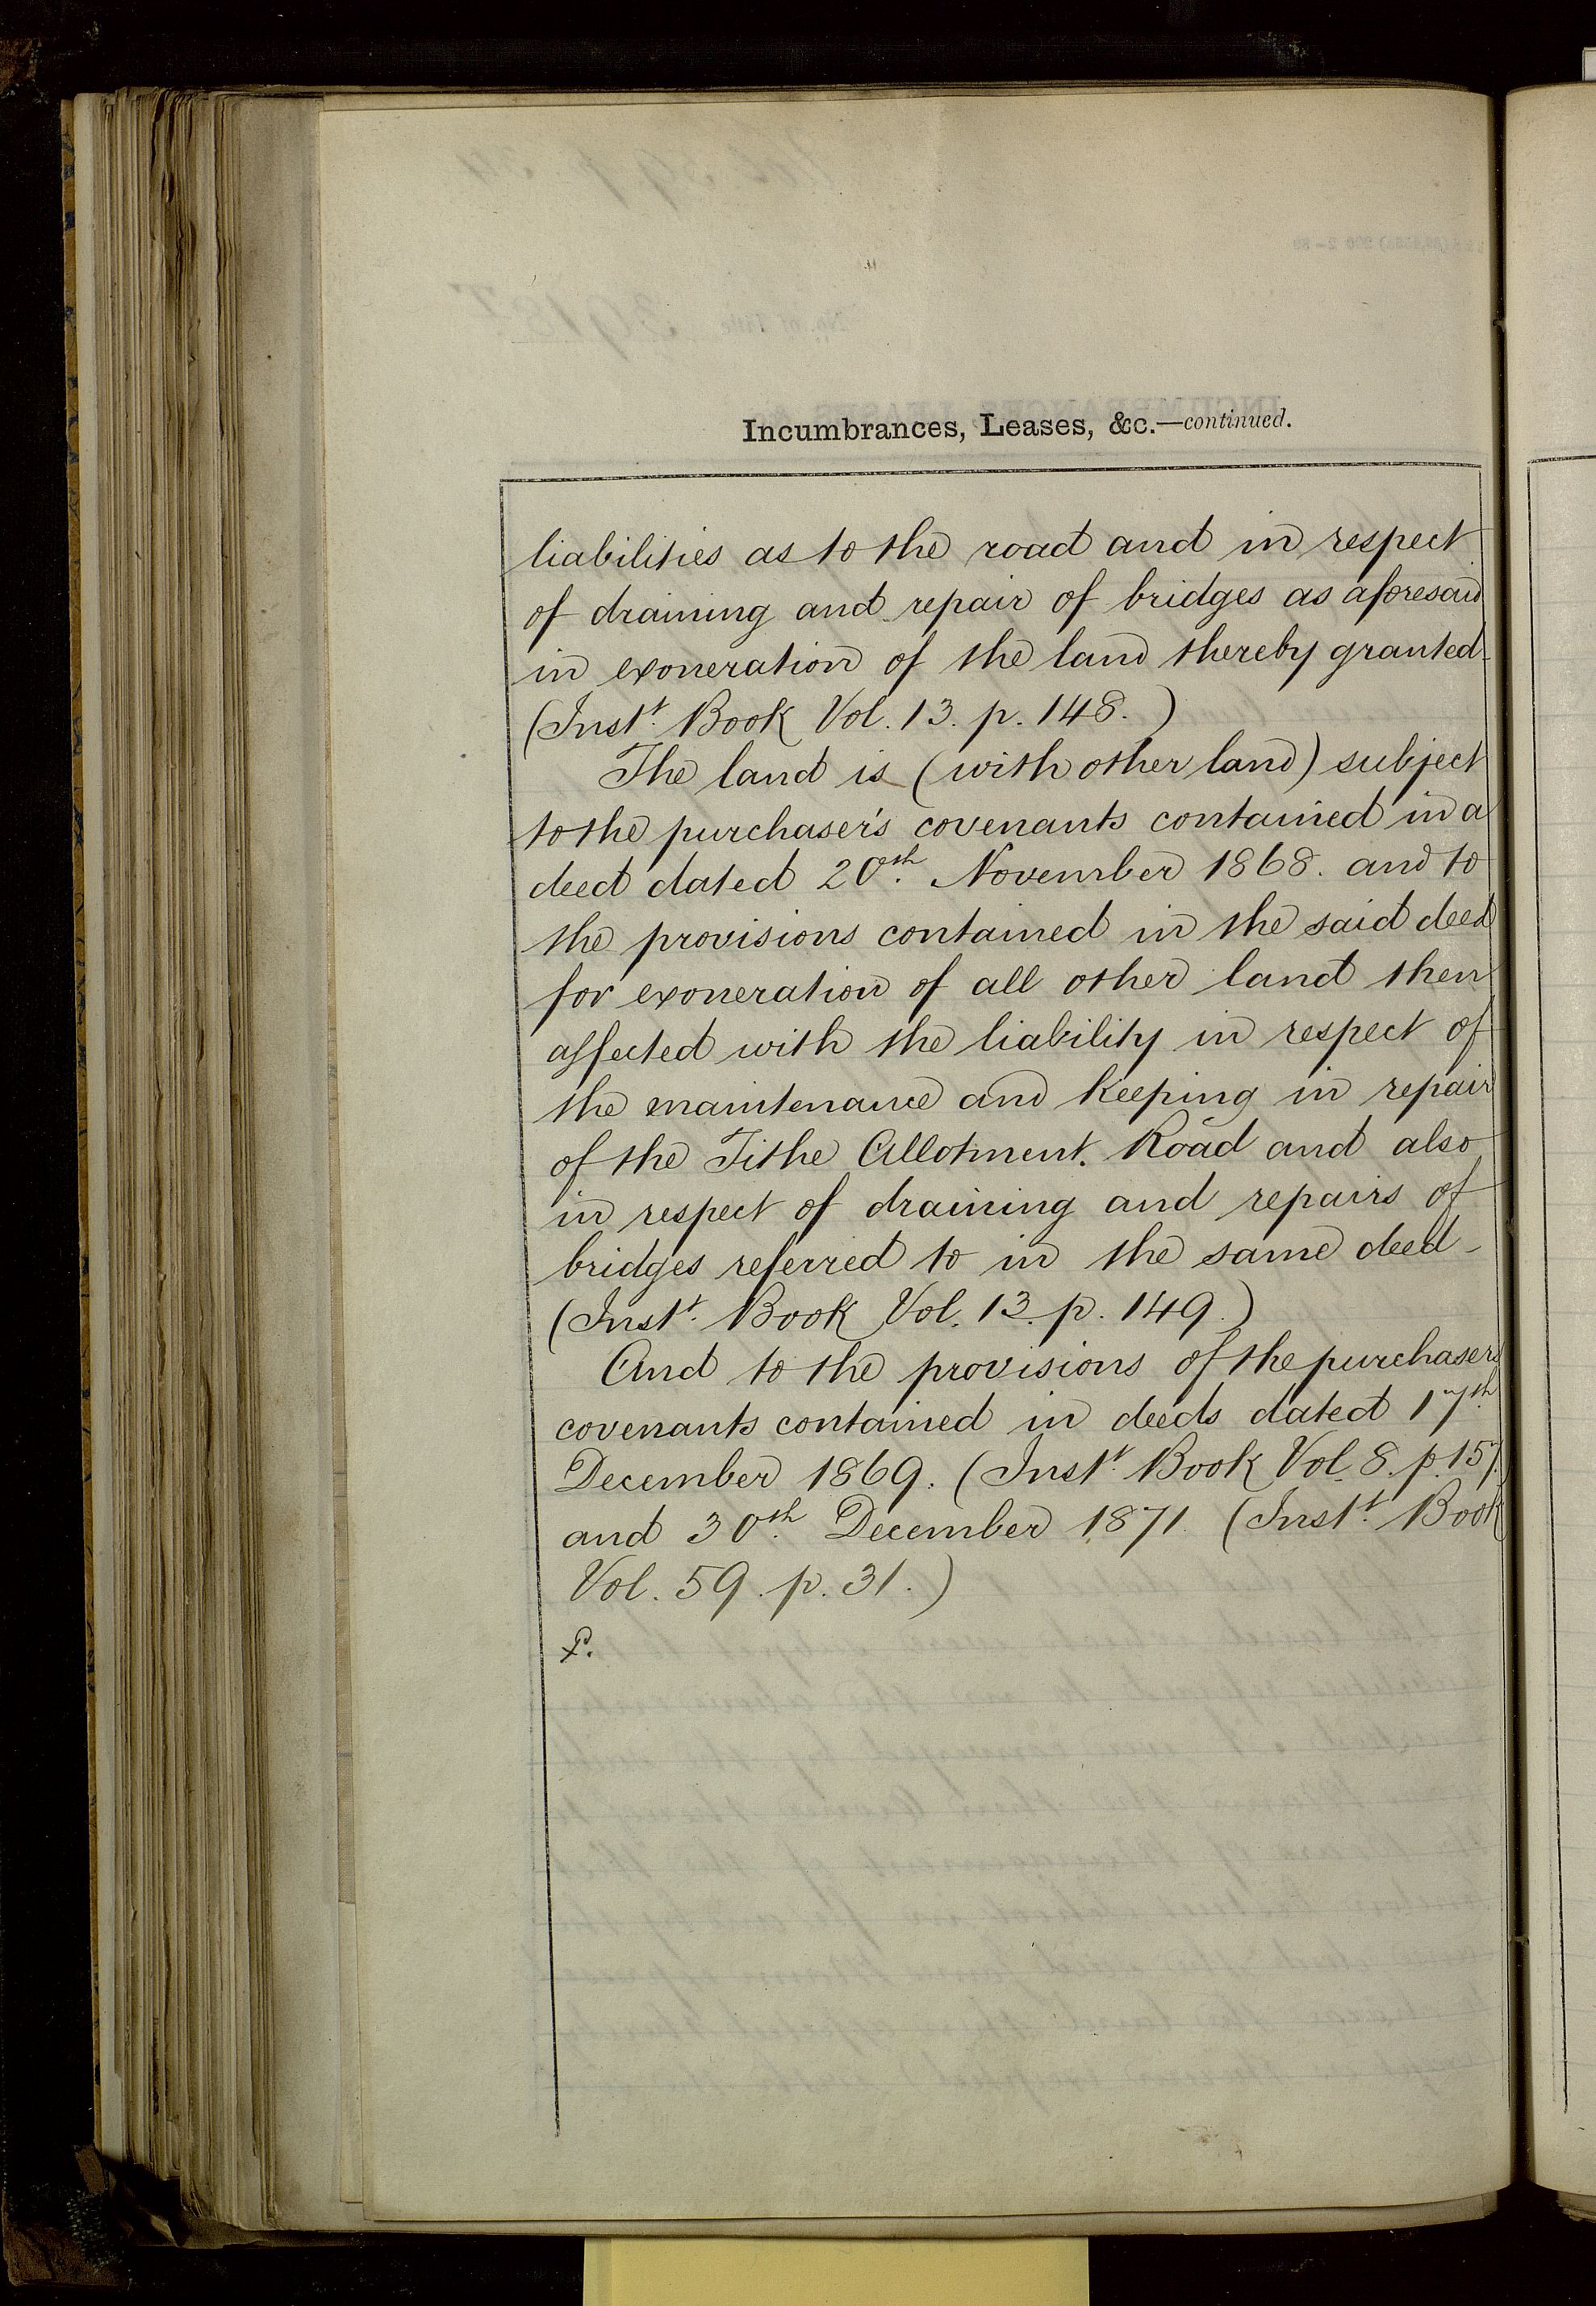 Incumbrances, Leases, &c.—continued.
liabilities as to the road and in respect
of draining and repair of bridges as aforesaid
in exoneration of the land thereby granted
(Instt. Book Vol. 13. p. 148.)
The land is (with other land) subject
to the purchaser's covenants contained in a
deed dated 20th. November 1868. and to
the provisions contained in the said deed
for exoneration of all other land then
affected with the liability in respect of
the maintenance and keeping in repair
of the Tithe Allotment. Road and also
in respect of draining and repairs of
bridges referred to in the same deed -
(Instt. Book Vol. 13. p. 149.)
And to the provisions of the purchasers
covenants contained in deeds dated 17th.
December 1869. (Instt. Book Vol. 8. p. 157.)
and 30th. December 1871. (Instt. Book
Vol. 59. p. 31.)